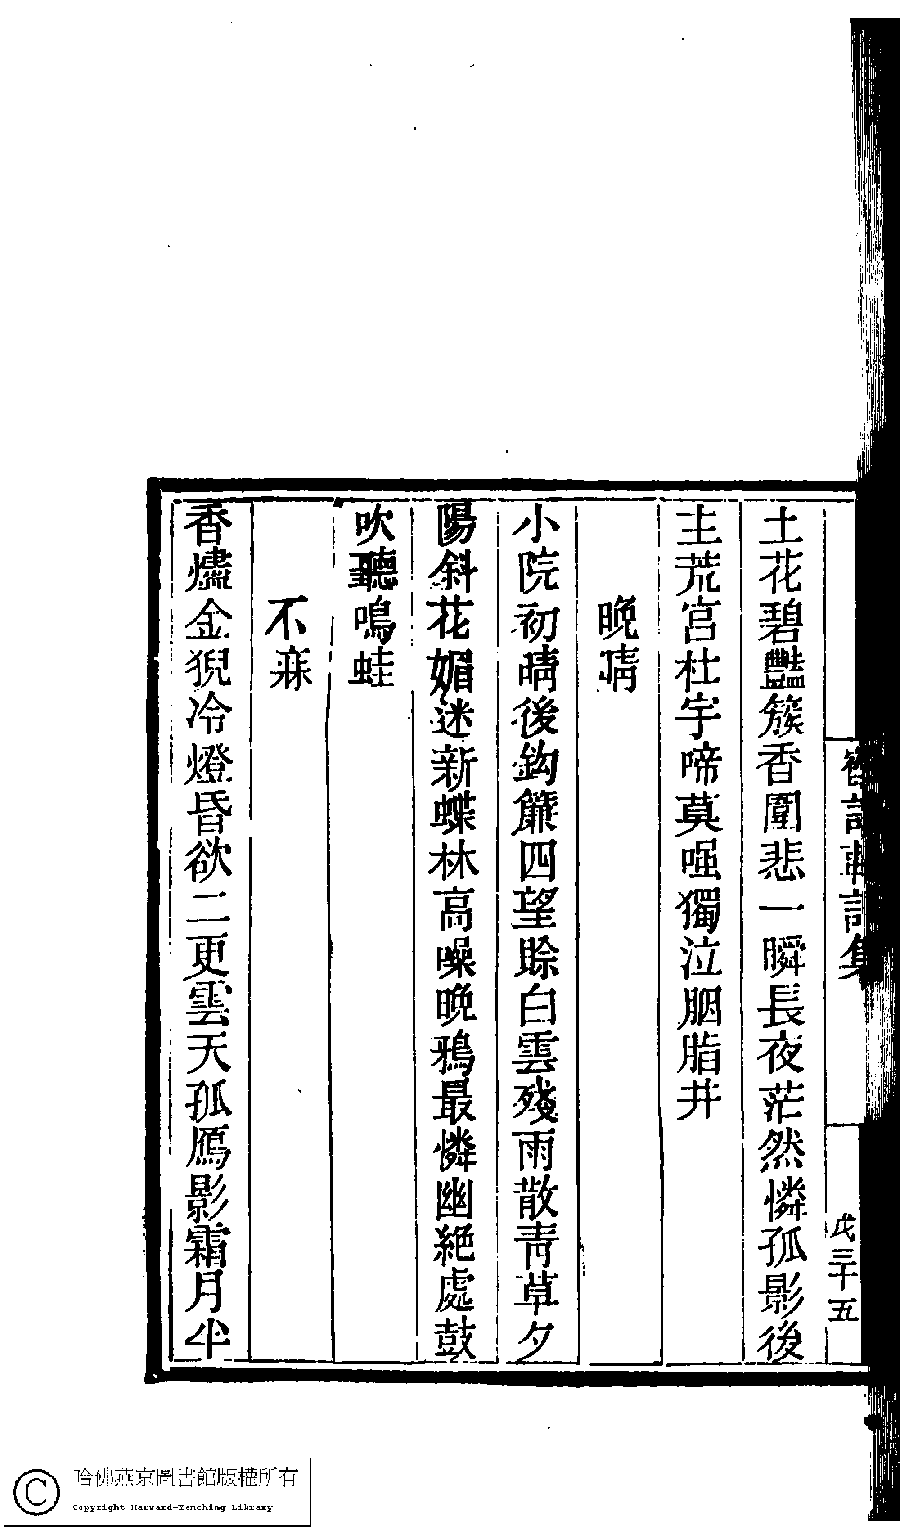 土花碧豔簇香圍悲一瞬長夜茫然憐孤影後
主荒宮杜宇啼莫唱獨泣胭脂井
晚晴
小院初晴後鈎簾四望賒白雲殘雨散靑草夕
陽斜花媚迷新蝶林高噪晚鴉最憐幽絕處鼓
吹聽鳴蛙
不寐
香燼金猊冷燈昏欲二更雲天孤鴈影霜月半
詩集
戊三十五
哈佛燕京圖書館版權所有
Copyright Harvard-Yenching Library